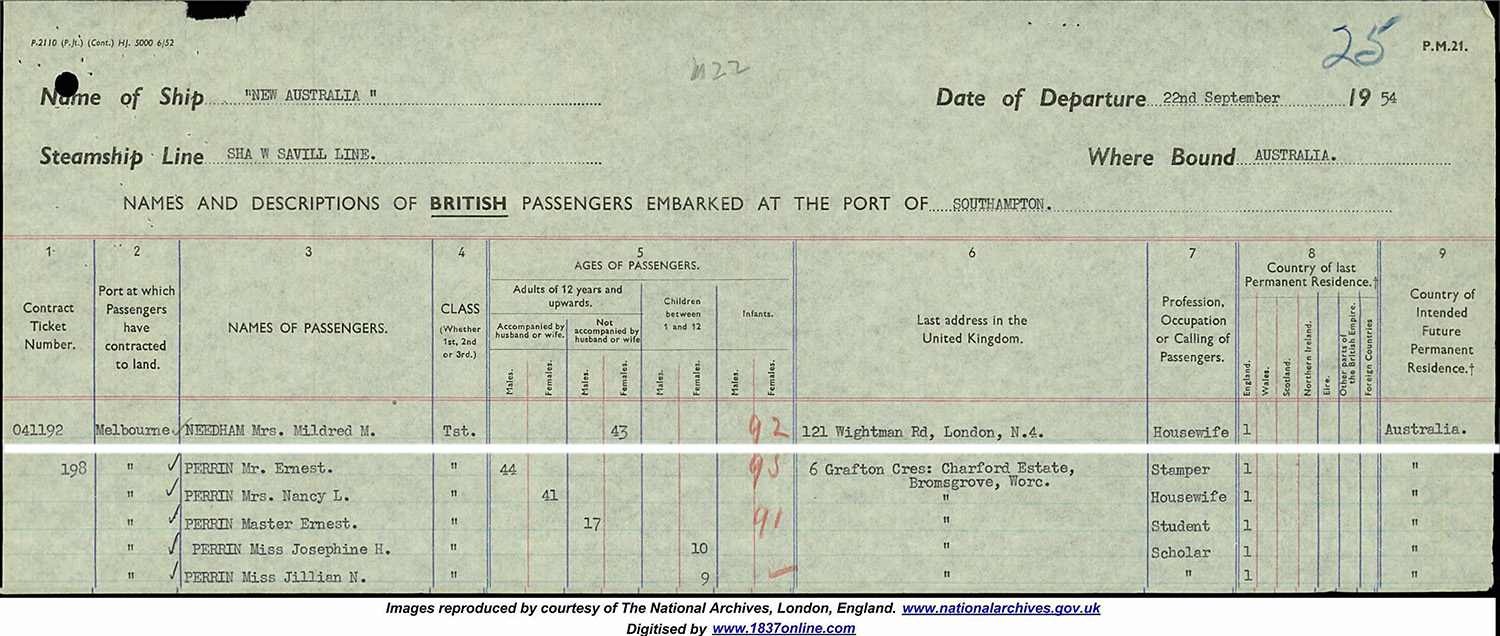 P.2110 (P.Jt.) (Cont.) HJ. 5000 6/52
25
P.M.21.
M22
Name of Ship "NEW AUSTRALIA "
Date of Departure 22nd September 19 54
Steamship Line SHA W SAVILL LINE.
Where Bound AUSTRALIA.
NAMES AND DESCRIPTIONS OF BRITISH PASSENGERS EMBARKED AT THE PORT OF SOUTHAMPTON.
1 2 3 4 5 6 7 8 9
Contract Ticket Number.
Port at which Passengers have contracted to land.
NAMES OF PASSENGERS.
CLASS (Whether 1st, 2nd or 3rd.)
AGES OF PASSENGERS.
Adults of 12 years and upwards.
Accompanied by husband or wife.
Not accompanied by husband or wife
Children between 1 and 12
Infants.
Males. Females. Males. Females. Males. Females. Males. Females.
Last address in the United Kingdom.
Profession, Occupation or Calling of Passengers.
Country of last Permanent Residence.†
England. Wales. Scotland. Northern Ireland. Eire. Other parts of the British Empire. Foreign Countries
Country of Intended Future Permanent Residence.†
041192 Melbourne ✓ NEEDHAM Mrs. Mildred M. Tst. 43 92 121 Wightman Rd, London, N.4. Housewife 1 Australia.
198 " ✓ PERRIN Mr. Ernest. " 44 93 6 Grafton Cres: Charford Estate, Stamper 1 "
Bromsgrove, Worc.
" ✓ PERRIN Mrs. Nancy L. " 41 " Housewife 1 "
" ✓ PERRIN Master Ernest. " 17 91 " Student 1 "
" ✓ PERRIN Miss Josephine H. " 10 " Scholar 1 "
" ✓ PERRIN Miss Jillian N. " 9 " " 1 "
Images reproduced by courtesy of The National Archives, London, England. www.nationalarchives.gov.uk
Digitised by www.1837online.com